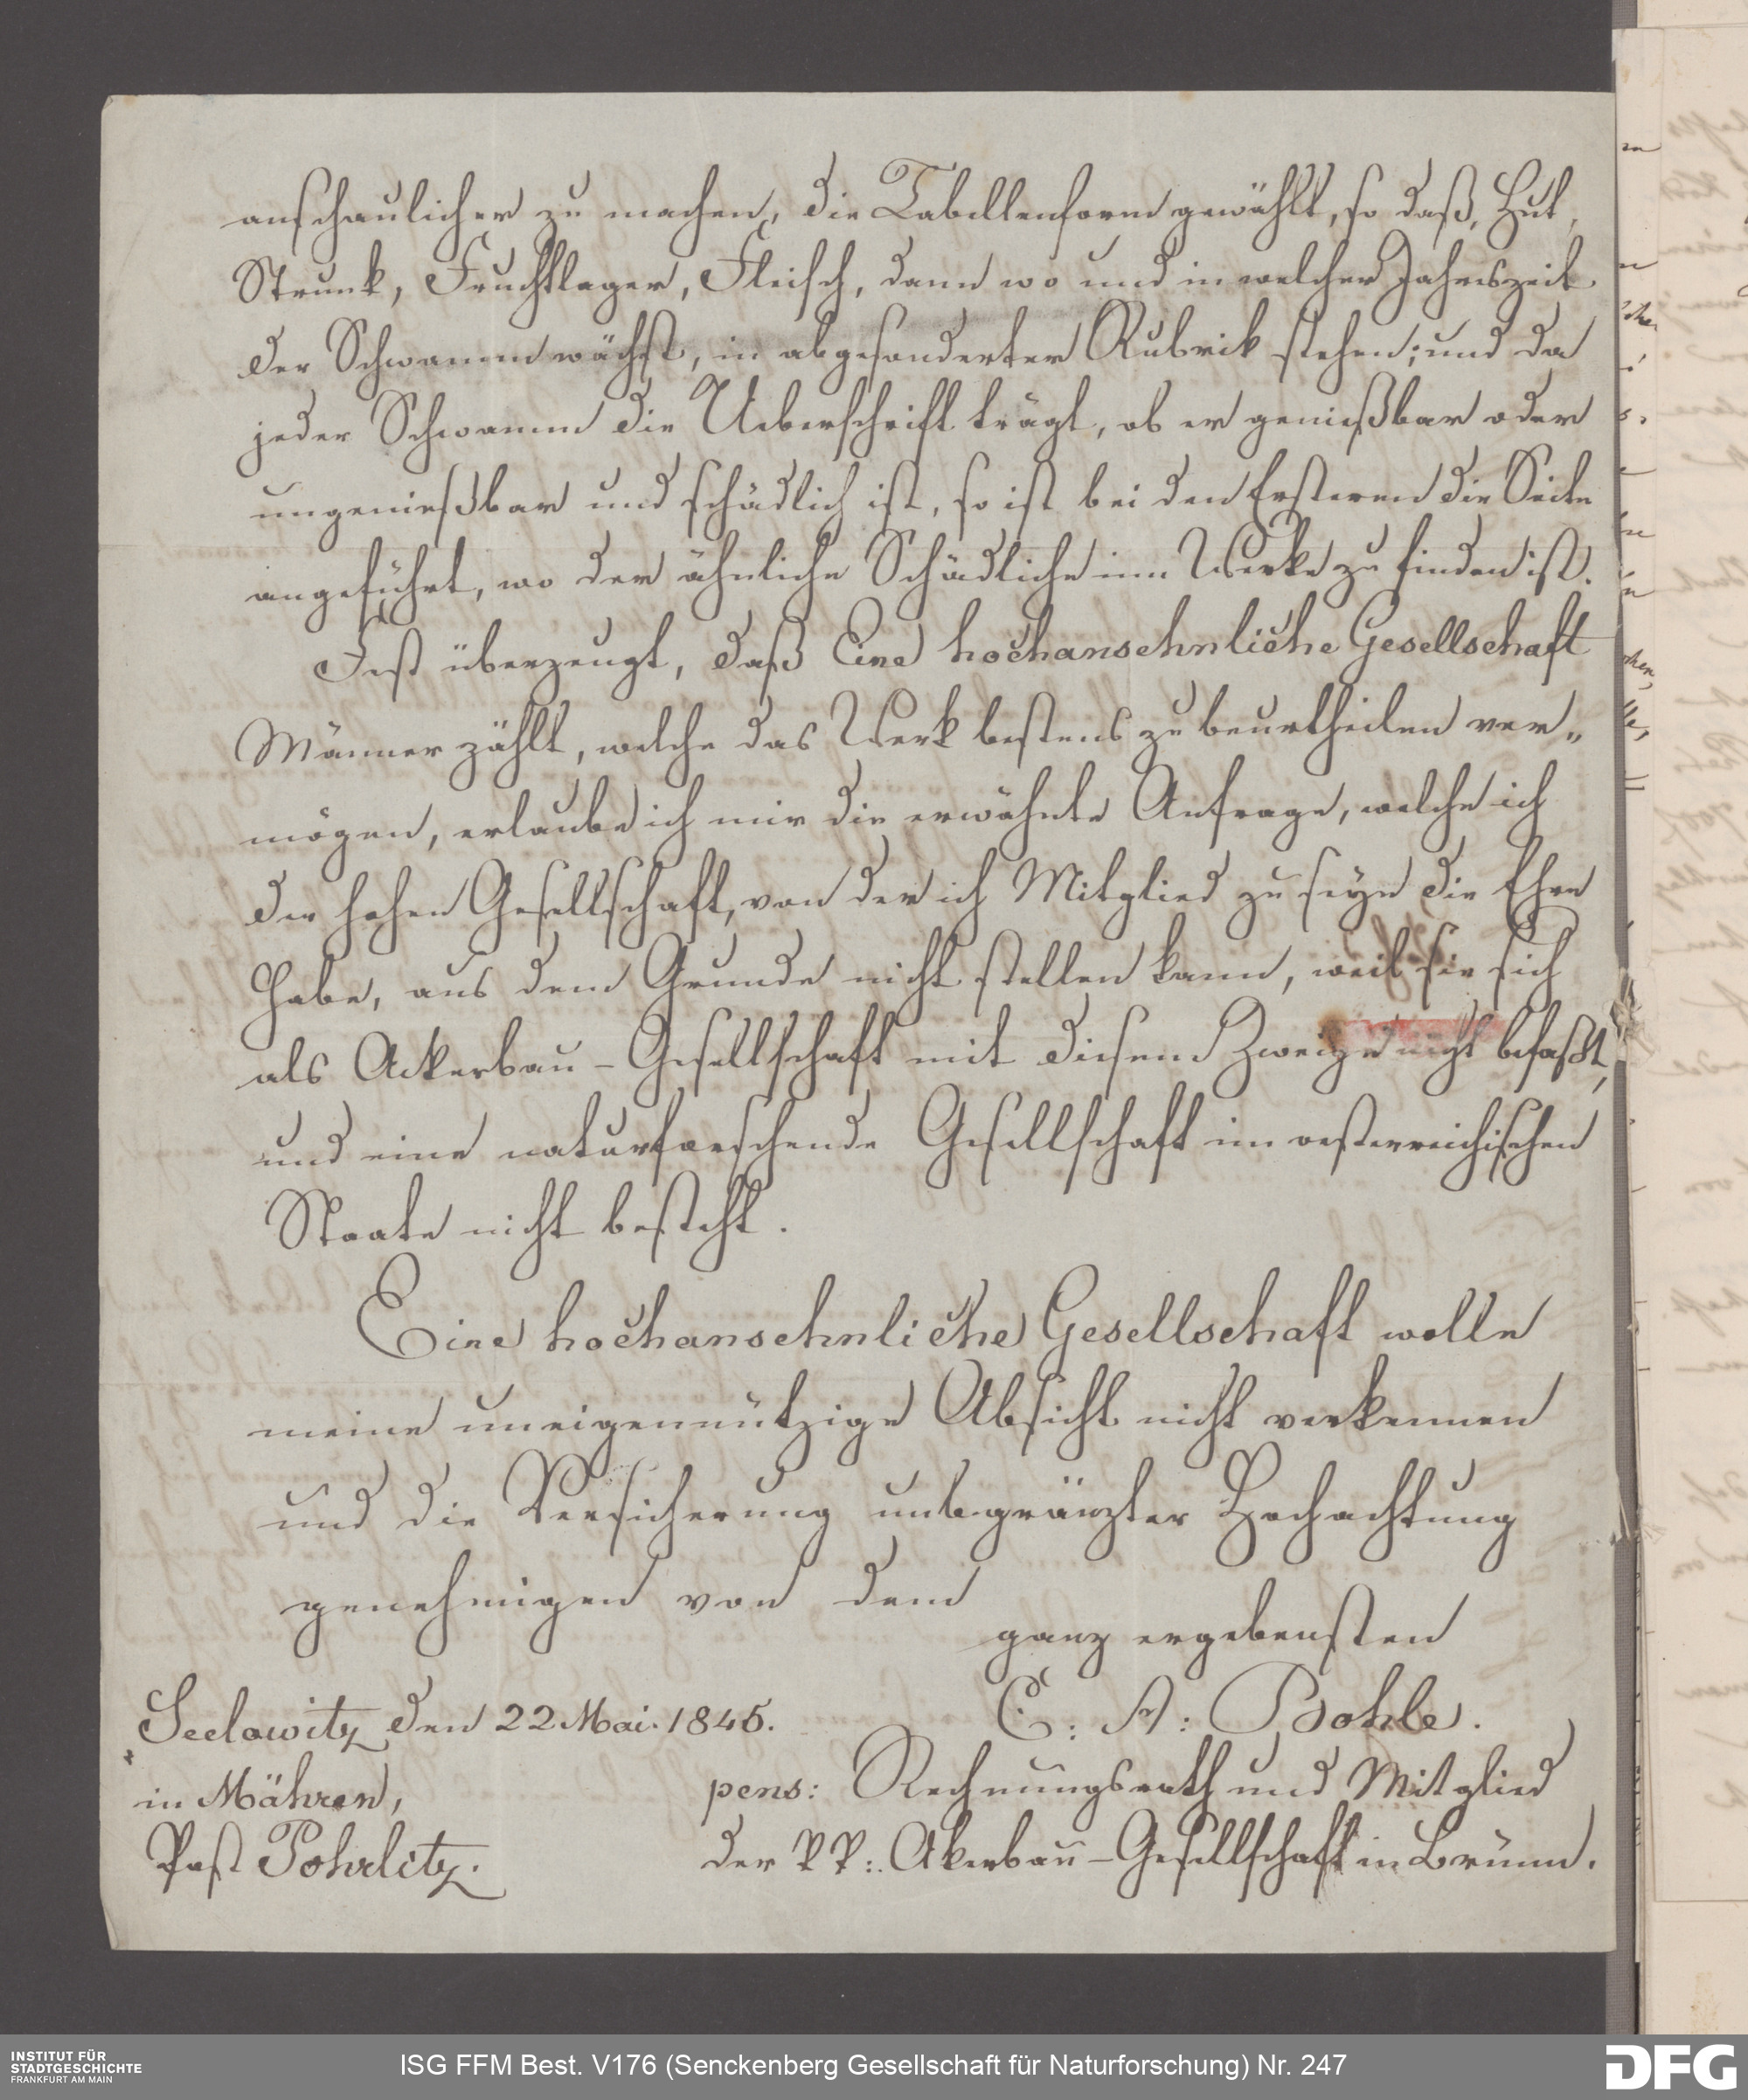 anschaulicher zu machen, die Tabellenform gewählt, so daß, Hut,
Strunk, Fruchtlager, Fleisch, dann wo und in welcher Jahreszeit
der Schwamm wächst, in abgesonderter Rubrik stehen; und da
jeder Schwamm die Ueberschrift trägt, ob er genießbar oder
ungenießbar und schädlich ist, so ist bei den Ersteren die Seite
angeführt, wo der ähnliche Schädliche im Werke zu finden ist.
Fest überzeugt, daß Eine hochansehnliche Gesellschaft
Männer zählt, welche das Werk bestens zu beurtheilen ver„
mögen, erlaube ich mir die erwähnte Anfrage, welche ich
der hohen Gesellschaft, von der ich Mitglied zu seyn die Ehre
habe, aus dem Grunde nicht stellen kann, weil sie sich
als Ackerbau-Gesellschaft mit diesem Zweige nicht befaßt,
und eine naturforschende Gesellschaft im oesterreichischen
Staate nicht besteht.
Eine hochansehnliche Gesellschaft wolle
meine uneigennützige Absicht nicht verkennen
und die Versicherung unbegränzter Hochachtung
genehmigen von dem
ganz ergebensten
Seelowitz den 22 Mai. 1845.
C: A: Bohle.
in Mähren,
pens: Rechnungsrath und Mitglied
Post Pohrlitz.
der k k:. Akerbau-Gesellschaft in Brünn.
INSTITUT FÜR
STADTGESCHICHTE
FRANKFURT AM MAIN
ISG FFM Best. V176 (Senckenberg Gesellschaft für Naturforschung) Nr. 247
DFG